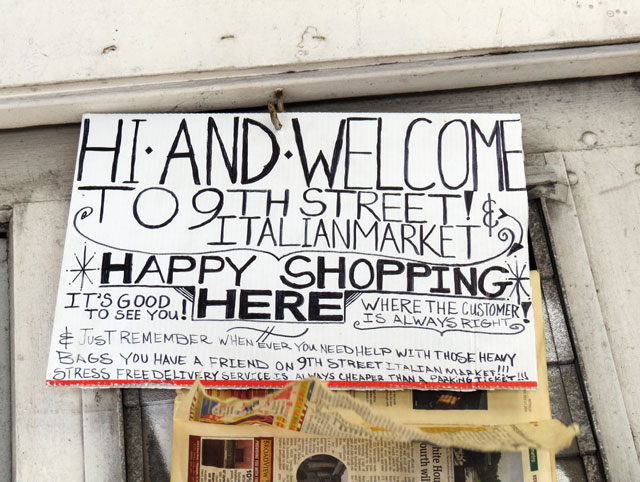 HI·AND·WELCOME
TO 9TH STREET! &
ITALIAN MARKET
*HAPPY SHOPPING*
IT'S GOOD
TO SEE YOU!
HERE
WHERE THE CUSTOMER
IS ALWAYS RIGHT!
& JUST REMEMBER WHEN EVER YOU NEED HELP WITH THOSE HEAVY
BAGS YOU HAVE A FRIEND ON 9TH STREET ITALIAN MARKET!!!
STRESS FREE DELIVERY SERVICE IS ALWAYS CHEAPER THAN A PARKING TICKET!!!